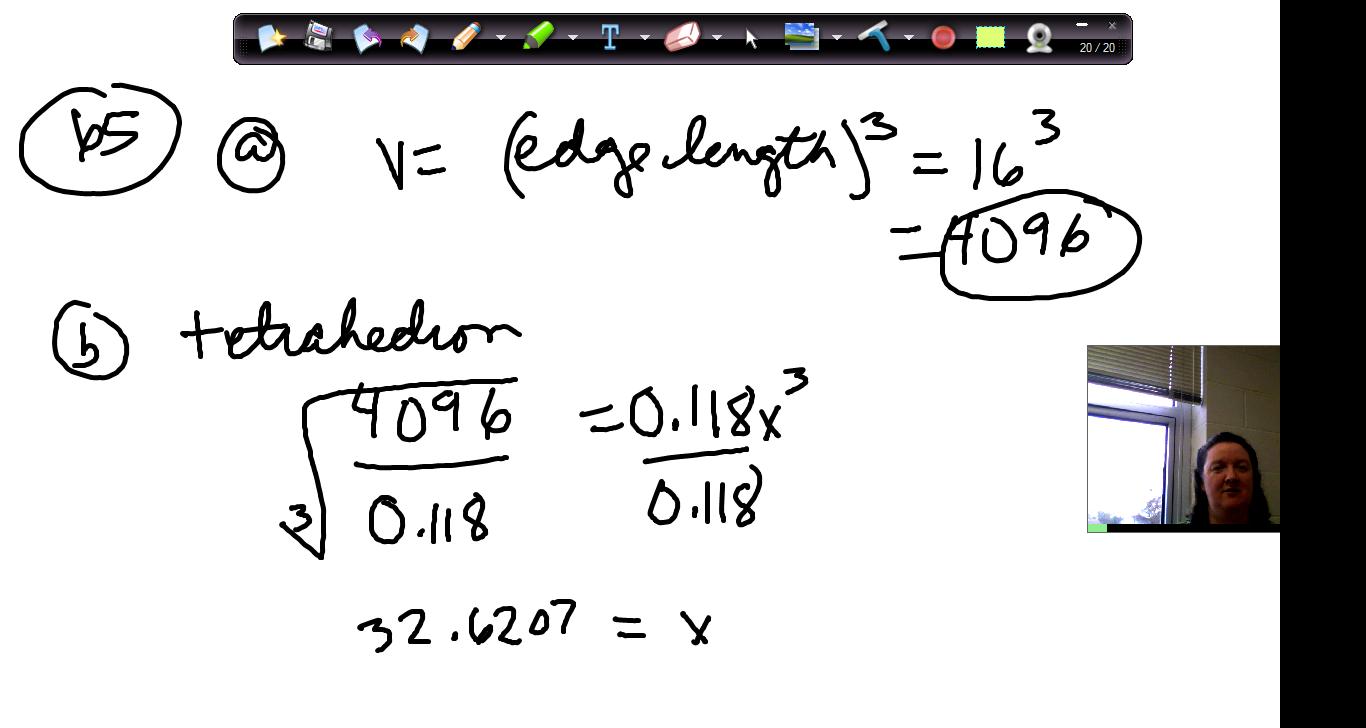 20 / 20
65 a V = (edge length)³ = 16³
= 4096
b tetrahedron
∛(4096 / 0.118) = 0.118x³ / 0.118
32.6207 = x